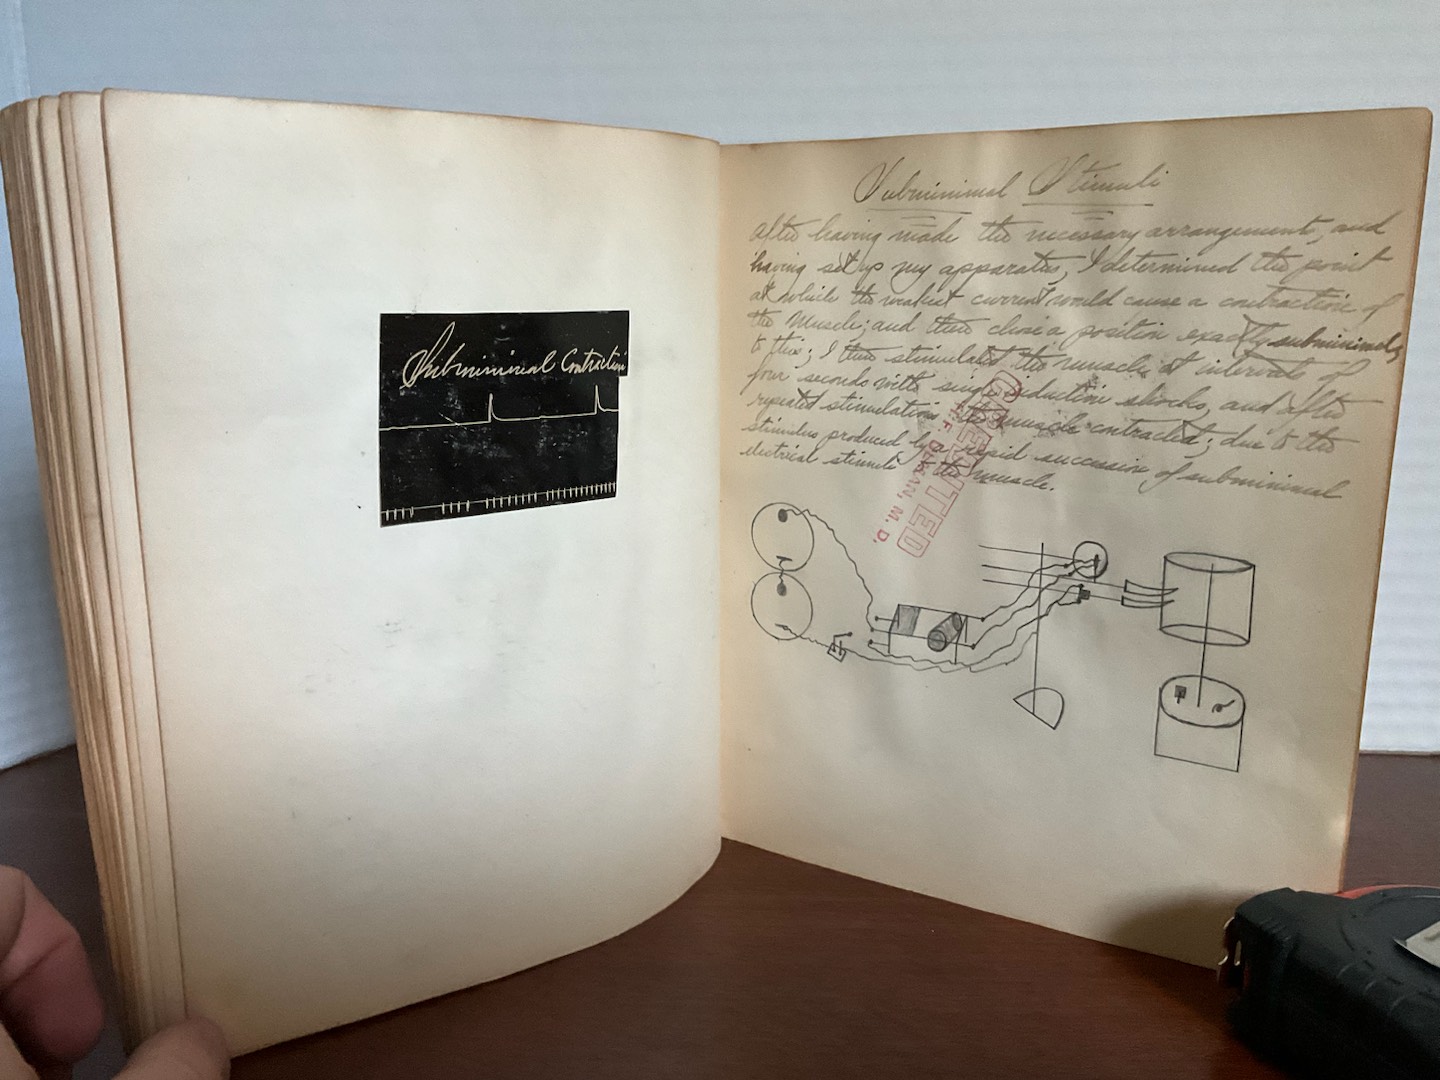 Subminimal Contraction
Subminimal Stimuli
After having made the necessary arrangements, and
having set up my apparatus, I determined the point
at which the weakest current would cause a contraction of
the Muscle; and then chose a position exactly subminimaly
to this; I then stimulated the muscle at intervals of
four seconds with single induction shocks, and after
repeated stimulations the muscle contracted; due to the
stimulus produced by a rapid succession of subminimal
electrical stimuli to the muscle.
CREDITED
M. D.